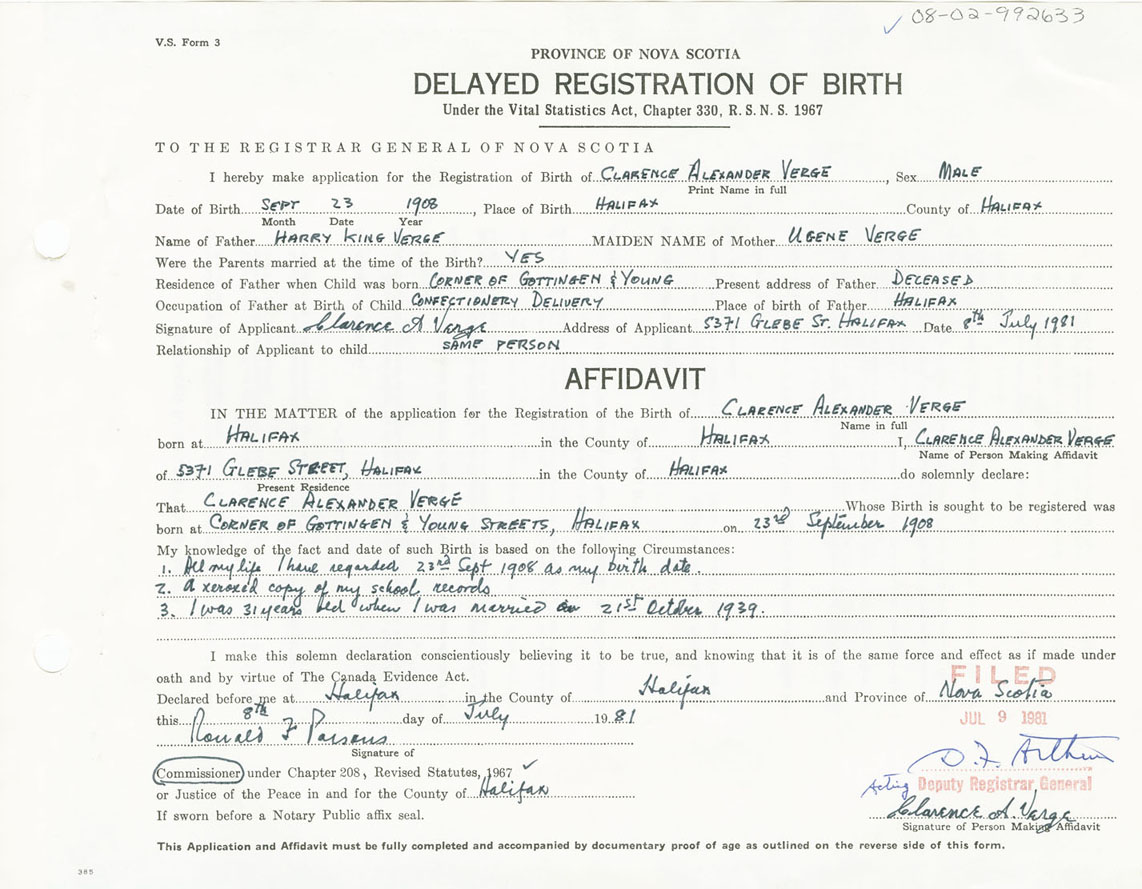 08-02-992633
V.S. Form 3
PROVINCE OF NOVA SCOTIA
DELAYED REGISTRATION OF BIRTH
Under the Vital Statistics Act, Chapter 330, R. S. N. S. 1967
TO THE REGISTRAR GENERAL OF NOVA SCOTIA
I hereby make application for the Registration of Birth of CLARENCE ALEXANDER VERGE, Sex MALE
Print Name in full
Date of Birth SEPT 23 1908, Place of Birth HALIFAX County of HALIFAX
Month Date Year
Name of Father HARRY KING VERGE MAIDEN NAME of Mother UGENE VERGE
Were the Parents married at the time of the Birth? YES
Residence of Father when Child was born CORNER OF GOTTINGEN & YOUNG Present address of Father DECEASED
Occupation of Father at Birth of Child CONFECTIONERY DELIVERY Place of birth of Father HALIFAX
Signature of Applicant Clarence A Verge Address of Applicant 5371 GLEBE ST. HALIFAX Date 8th July 1981
Relationship of Applicant to child SAME PERSON
AFFIDAVIT
IN THE MATTER of the application for the Registration of the Birth of CLARENCE ALEXANDER VERGE
Name in full
born at HALIFAX in the County of HALIFAX I, CLARENCE ALEXANDER VERGE
Name of Person Making Affidavit
of 5371 GLEBE STREET, HALIFAX in the County of HALIFAX do solemnly declare:
Present Residence
That CLARENCE ALEXANDER VERGE Whose Birth is sought to be registered was
born at CORNER OF GOTTINGEN & YOUNG STREETS, HALIFAX on 23rd September 1908
My knowledge of the fact and date of such Birth is based on the following Circumstances:
1. All my life I have regarded 23rd Sept 1908 as my birth date.
2. A xeroxed copy of my school records
3. I was 31 years old when I was married on 21st October 1939.
I make this solemn declaration conscientiously believing it to be true, and knowing that it is of the same force and effect as if made under
oath and by virtue of The Canada Evidence Act.
FILED
Declared before me at Halifax in the County of Halifax and Province of Nova Scotia
this 8th day of July 1981
JUL 9 1981
Ronald F Parsons
Signature of
D. F. Arthur
Commissioner under Chapter 208, Revised Statutes, 1967
Acting Deputy Registrar General
or Justice of the Peace in and for the County of Halifax
Clarence A. Verge
If sworn before a Notary Public affix seal.
Signature of Person Making Affidavit
This Application and Affidavit must be fully completed and accompanied by documentary proof of age as outlined on the reverse side of this form.
385